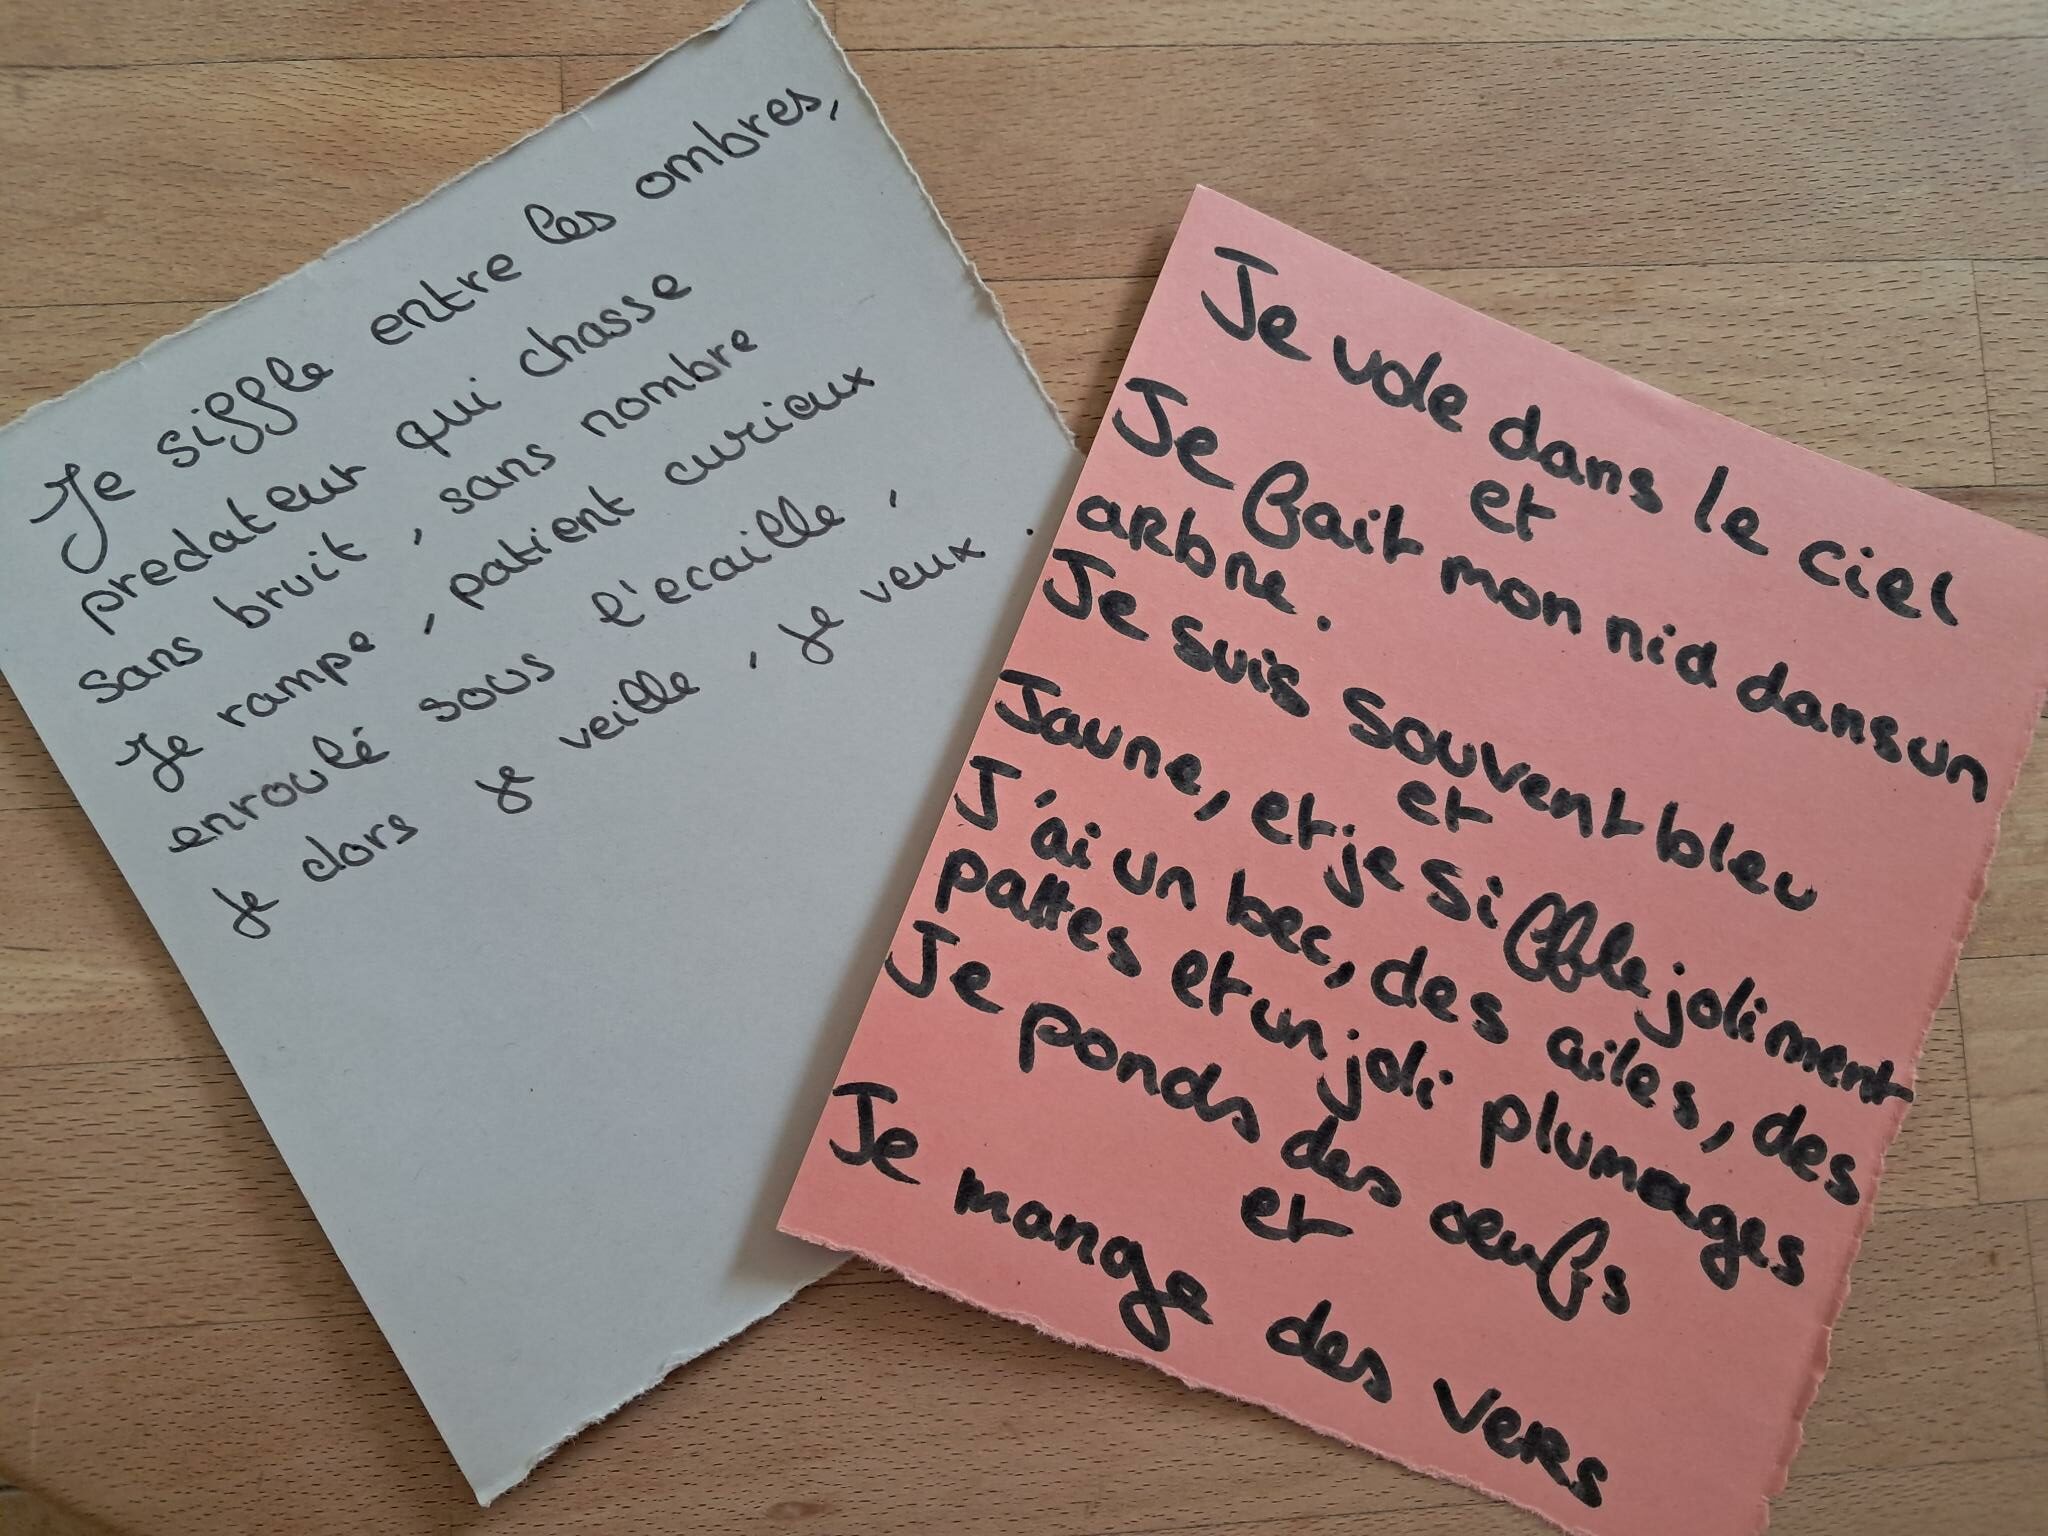 Je siffle entre les ombres,
predateur qui chasse
sans bruit, sans nombre
Je rampe, patient curieux
enroulé sous l'ecaille,
Je dors je veille, je veux.
Je vole dans le ciel
et
Je fait mon nid dans un
arbre.
Je suis souvent bleu
et
Jaune, et je siffle joliment
J'ai un bec, des ailes, des
pattes et un joli plumages
Je ponds des oeufs
et
Je mange des vers